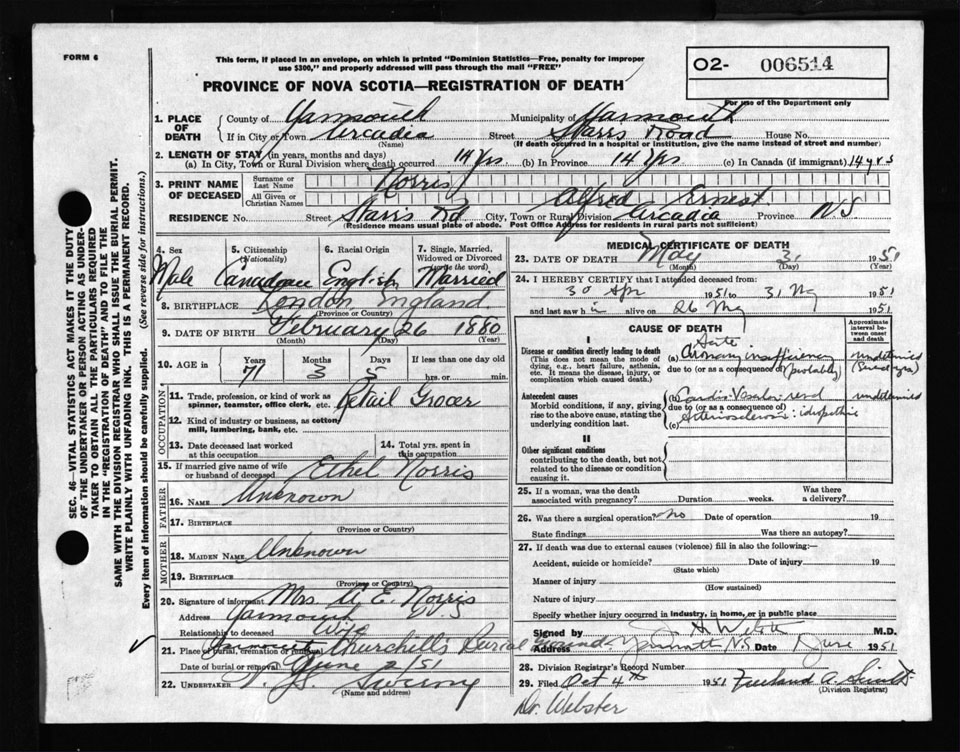 FORM 6
This form, if placed in an envelope, on which is printed "Dominion Statistics—Free, penalty for improper
use $300," and properly addressed will pass through the mail "FREE"
O2- 006514
For use of the Department only
PROVINCE OF NOVA SCOTIA—REGISTRATION OF DEATH
SEC. 46—VITAL STATISTICS ACT MAKES IT THE DUTY
OF THE UNDERTAKER OR PERSON ACTING AS UNDER-
TAKER TO OBTAIN ALL THE PARTICULARS REQUIRED
IN THE "REGISTRATION OF DEATH" AND TO FILE THE
SAME WITH THE DIVISION REGISTRAR WHO SHALL ISSUE THE BURIAL PERMIT.
WRITE PLAINLY WITH UNFADING INK. THIS IS A PERMANENT RECORD.
Every item of information should be carefully supplied. (See reverse side for instructions.)
1. PLACE OF DEATH
County of Yarmouth Municipality of Yarmouth
If in City or Town Arcadia Street Starrs Road House No.
(Name) (If death occurred in a hospital or institution, give the name instead of street and number)
2. LENGTH OF STAY (in years, months and days)
(a) In City, Town or Rural Division where death occurred 14 Yrs (b) In Province 14 Yrs (c) In Canada (if immigrant) 14 yrs
3. PRINT NAME OF DECEASED
Surname or Last Name Norris
All Given or Christian Names Alfred Ernest
RESIDENCE No. Street Starrs Rd. City, Town or Rural Division Arcadia Province N S
(Residence means usual place of abode. Post Office Address for residents in rural parts not sufficient)
4. Sex 5. Citizenship (Nationality) 6. Racial Origin 7. Single, Married, Widowed or Divorced (write the word)
Male Canadian English Married
8. BIRTHPLACE London England
(Province or Country)
9. DATE OF BIRTH February 26 1880
(Month) (Day) (Year)
10. AGE in Years Months Days If less than one day old
71 3 5 hrs. or min.
OCCUPATION
11. Trade, profession, or kind of work as
spinner, teamster, office clerk, etc. Retail Grocer
12. Kind of industry or business, as cotton
mill, lumbering, bank, etc.
13. Date deceased last worked
at this occupation
14. Total yrs. spent in
this occupation
15. If married give name of wife
or husband of deceased Ethel Norris
FATHER
16. NAME Unknown
17. BIRTHPLACE
(Province or Country)
MOTHER
18. MAIDEN NAME Unknown
19. BIRTHPLACE
(Province or Country)
20. Signature of informant Mrs. A. E. Norris
Address Yarmouth
Relationship to deceased Wife
21. Place of burial, cremation or removal Churchill's Burial Ground
Date of burial or removal June 2/51
22. UNDERTAKER Sweeny
(Name and address)
MEDICAL CERTIFICATE OF DEATH
23. DATE OF DEATH May 31 1951
(Month) (Day) (Year)
24. I HEREBY CERTIFY that I attended deceased from
30 Apr 1951 to 31 My 1951
and last saw h i alive on 26 My 1951
CAUSE OF DEATH
Approximate interval between onset and death
I
Disease or condition directly leading to death
(This does not mean the mode of
dying, e.g., heart failure, asthenia,
etc. It means the disease, injury, or
complication which caused death.)
Acute
(a) Coronary insufficiency undetermined
due to (or as a consequence of) (probably)
Antecedent causes
Morbid conditions, if any, giving
rise to the above cause, stating the
underlying condition last.
(b) Cardio-Vascular-renal undetermined
due to (or as a consequence of)
(c) Arteriosclerosis: idiopathic
II
Other significant conditions
contributing to the death, but not
related to the disease or condition
causing it.
25. If a woman, was the death
associated with pregnancy? Duration weeks. Was there
a delivery?
26. Was there a surgical operation? No Date of operation 19
State findings Was there an autopsy?
27. If death was due to external causes (violence) fill in also the following:—
Accident, suicide or homicide? Date of injury 19
(State which)
Manner of injury
(How sustained)
Nature of injury
Specify whether injury occurred in industry, in home, or in public place
Signed by Webster M.D.
Address Yarmouth N.S. Date 1 June 1951
28. Division Registrar's Record Number
29. Filed Oct 4th 1951 Freeland A. Smith
(Division Registrar)
Dr. Webster